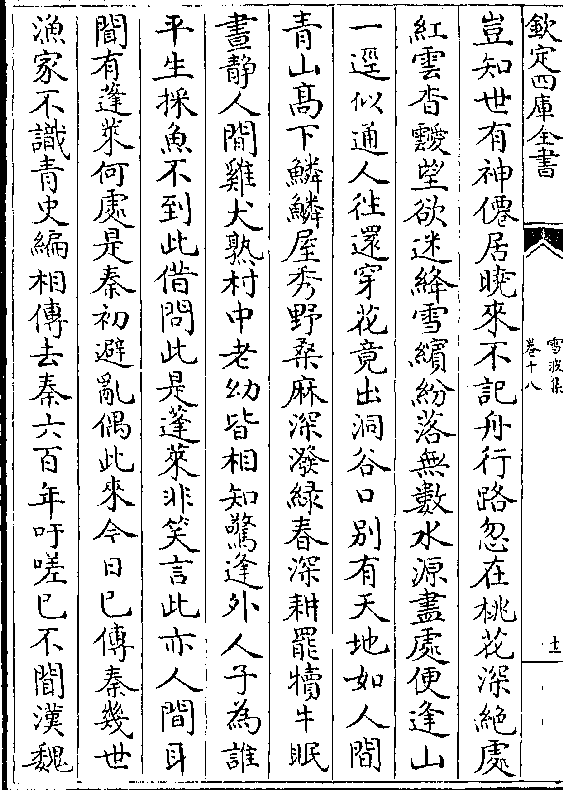 欽定四庫全書
雪坡集
卷十八
十二
豈知世有神僊居曉來不記舟行路忽在桃花深絶處
紅雲杳靉望欲迷絳雪繽紛落無數水源盡處便逢山
一逕似通人徃還穿花竟出洞谷口別有天地如人間
青山髙下鱗鱗屋秀野桑麻深潑緑春深耕罷犢牛眠
晝静人間雞犬熟村中老幼皆相知驚逢外人子為誰
平生採魚不到此借問此是蓬萊非笑言此亦人間耳
間有蓬萊何處是秦初避亂偶此來今日已傳秦幾世
漁家不識青史編相傳去秦六百年吁嗟已不聞漢魏